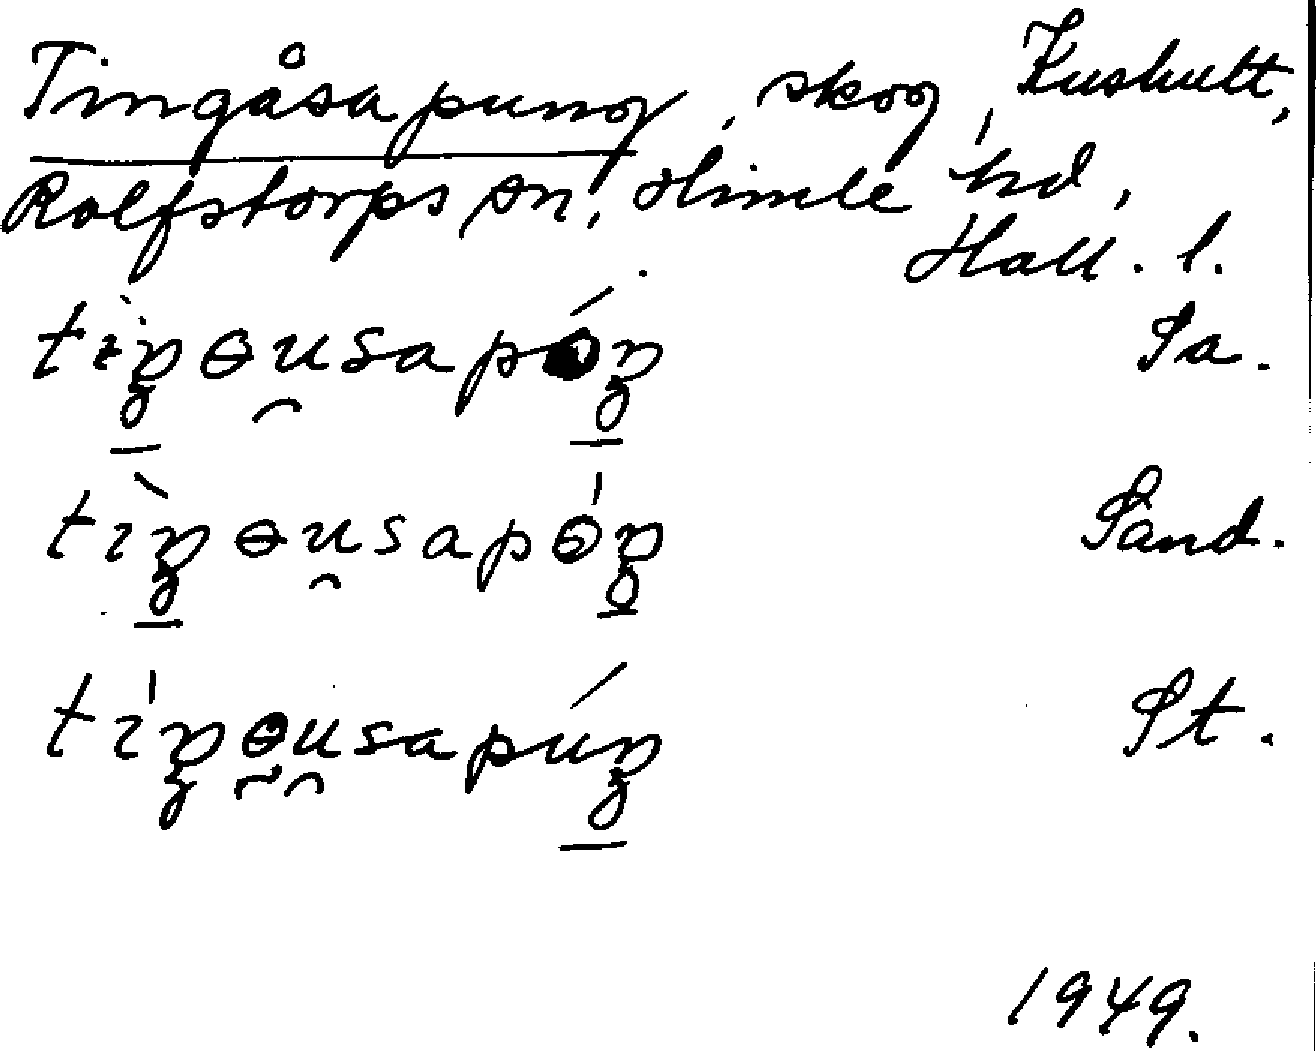 Tingåsapung, skog, Kushult,
Rolfstorps sn, Himle hd,
Hall. l.
tìŋɵu̯sapóŋ Sa.
tìŋɵu̯sapɵ́ŋ Sand.
tíŋɵ̯u̯sapúŋ St.
1949.